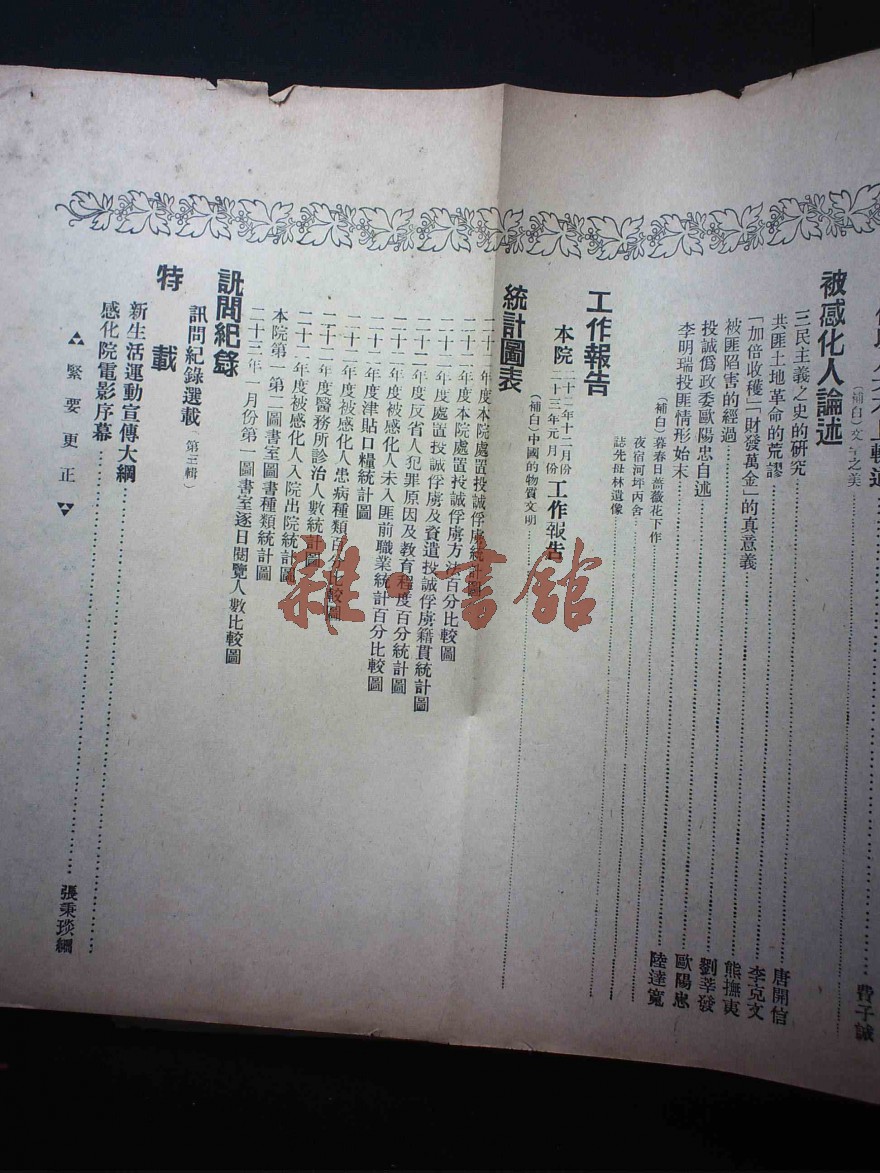 費子誠
(補白)文字之美
被感化人論述
三民主義之史的研究 唐開信
共匪土地革命的荒謬 李克文
「加倍收穫」「財發萬金」的真意義 熊撫夷
被匪陷害的經過 劉莘發
投誠僞政委歐陽忠自述 歐陽忠
李明瑞投匪情形始末 陸達寬
(補白)暮春日薔薇花下作
夜宿河坪丙舍
誌先母林遺像
工作報告
本院二十二年十二月份二十三年元月份工作報告
(補白)中國的物質文明
統計圖表
二十二年度本院處置投誠俘虜統計圖
二十二年度本院處置投誠俘虜方法百分比較圖
二十二年度處置投誠俘虜及資遣投誠俘虜籍貫統計圖
二十二年度反省人犯罪原因及教育程度百分統計圖
二十二年度被感化人未入匪前職業統計百分比較圖
二十二年度津貼口糧統計圖
二十二年度被感化人患病種類百分比較圖
二十二年度醫務所診治人數統計圖
二十二年度被感化人入院出院統計圖
本院第一第二圖書室圖書種類統計圖
二十三年一月份第一圖書室逐日閱覽人數比較圖
訊問紀錄
訊問紀錄選載(第三輯)
特載
新生活運動宣傳大綱
感化院電影序幕 張秉琰編
緊要更正
雜·書館